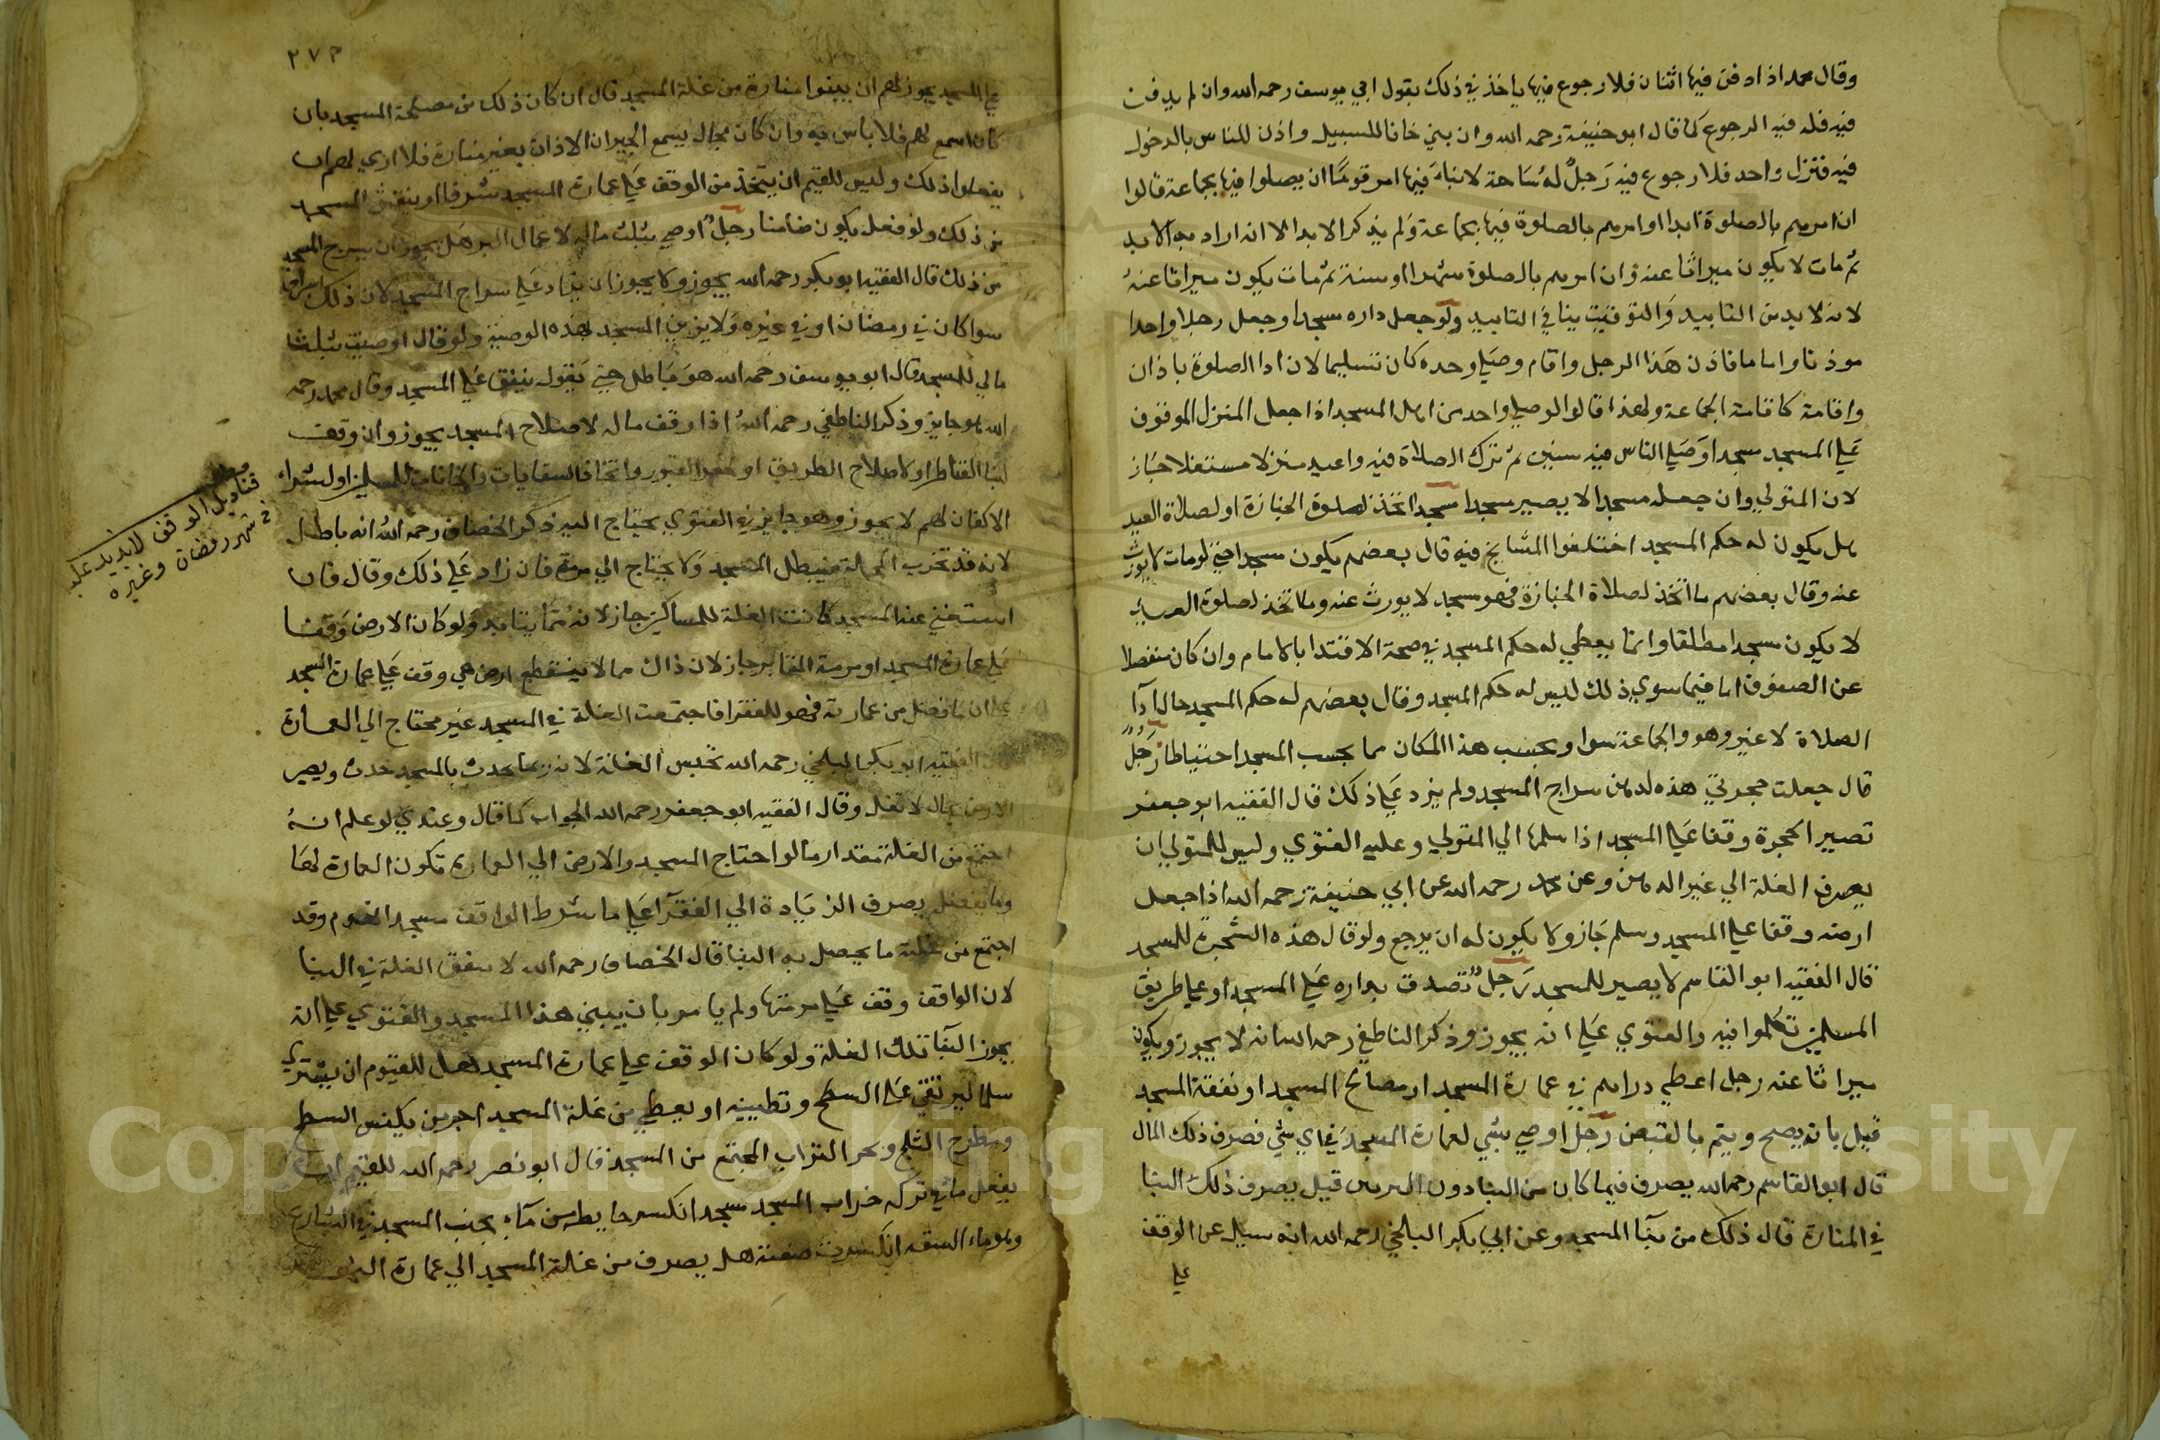 وقال محمد اذا دفن فيها اثنان فلا رجوع فيها ياخذ في ذلك بقول ابي يوسف رحمه الله وان لم يدفن
فيه فله فيه الرجوع كما قال ابو حنيفة رحمه الله وان بني خانا للسبيل واذن للناس بالدخول
فيه فنزل واحد فلا رجوع فيه رجل له ساحة لا بناء فيها امر قوما ان يصلوا فيها بجماعة قالوا
ان امرهم بالصلوة ابدا او امرهم بالصلوة فيها بجماعة ولم يذكر الابد الا انه اراد به الابد
ثم مات لا يكون ميراثا عنه وان امرهم بالصلوة شهرا او سنة ثم مات يكون ميراثا عنه
لانه لا بد من التابيد والتوقيت ينافي التابيد ولو جعل داره مسجدا وجعل رجلا واحدا
موذنا واماما فاذن هذا الرجل واقام وصلي وحده كان تسليما لان ادا الصلوة باذان
واقامة كاقامة الجماعة ولهذا قالوا لو صلي واحد من اهل المسجد اذا جعل المنزل الموقوف
علي المسجد مسجدا وصلي الناس فيه سنين ثم ترك الصلاة فيه واعيد منزلا مستغلا جاز
لان المتولي وان جعله مسجدا لا يصير مسجدا مسجد اتخذ لصلوة الجنازة او لصلاة العيد
هل يكون له حكم المسجد اختلفوا المشايخ فيه قال بعضهم يكون مسجدا حتي لو مات لا يورث
عنه وقال بعضهم ما اتخذ لصلاة الجنازة فهو مسجد لا يورث عنه وما اتخذ لصلوة العيد
لا يكون مسجدا مطلقا وانما يعطي له حكم المسجد في صحة الاقتدا بالامام وان كان منفصلا
عن الصفوف اما فيما سوي ذلك ليس له حكم المسجد وقال بعضهم له حكم المسجد حال ادا
الصلاة لا غير وهو والجماعة سوا ويجنب هذا المكان مما يجنب المسجد احتياطا رجل
قال جعلت حجرتي هذه لدهن سراج المسجد ولم يزد علي ذلك قال الفقيه ابو جعفر
تصير الحجرة وقفا علي المسجد اذا سلمها الي المتولي وعليه الفتوي وليس للمتولي ان
يصرف الغلة الي غير الدهن وعن محمد رحمه الله عن ابي حنيفة رحمه الله اذا جعل
ارضه وقفا علي المسجد وسلم جاز ولا يكون له ان يرجع ولو قال هذه الشجرة للمسجد
قال الفقيه ابو القاسم لا يصير للمسجد رجل تصدق بداره علي المسجد او علي طريق
المسلمين تكلموا فيه والفتوي علي انه يجوز وذكر الناطفي رحمه الله انه لا يجوز ويكون
ميراثا عنه رجل اعطي دراهم في عمارة المسجد او مصالح المسجد او نفقة المسجد
قيل بانه يصح ويتم بالقبض رجل اوصي بشي لعمارة المسجد في اي شي يصرف ذلك المال
قال ابو القاسم رحمه الله يصرف فيما كان من البنا دون التزيين قيل يصرف ذلك البنا
في المنارة قال ذلك من بنا المسجد وعن ابي بكر البلخي رحمه الله انه سيل عن الوقف
علي
٢٧٣
علي المسجد يجوز لهم ان يبنوا منارة من غلة المسجد قال ان كان ذلك من مصلحة المسجد بان
كان اسمع لهم فلا باس به وان كان بحال يسمع الجيران الاذان بغير منارة فلا اري لهم ان
يفعلوا ذلك وليس للقيم ان يتخذ من الوقف علي عمارة المسجد شرفا او ينقش المسجد
من ذلك ولو فعل يكون ضامنا رجل اوصي بثلث ماله لاعمال البر هل يجوز ان يسرج المسجد
من ذلك قال الفقيه ابو بكر رحمه الله يجوز ولا يجوز ان يزاد علي سراج المسجد لان ذلك اسراف
سوا كان في رمضان او في غيره ولا يزين المسجد بهذه الوصية ولو قال اوصيت بثلث
مالي للمسجد قال ابو يوسف رحمه الله هو باطل حتي يقول ينفق علي المسجد وقال محمد رحمه
الله هو جايز وذكر الناطفي رحمه الله اذا وقف ماله لاصلاح المسجد يجوز وان وقف
لبنا القناطر او لاصلاح الطريق او حفر القبور واتخاذ السقايات والخانات للمسلمين او لشراء
الاكفان لهم لا يجوز وهو جايز في الفتوي يحتاج اليه ذكر الخصاف رحمه الله انه باطل
لانه قد تخرب المحلة فيبطل المسجد ولا يحتاج الي مرمة فان زاد علي ذلك وقال فان
استغني عنه المسجد كانت الغلة للمساكين جاز لانه مما يتابد ولو كان الارض وقفا
علي عمارة المسجد او مرمة المقابر جاز لان ذاك مما لا ينقطع ارض هي وقف علي عمارة المسجد
علي ان ما فضل من عمارته فهو للفقرا فاجتمعت الغلة في المسجد غير محتاج الي العمارة
الفقيه ابو بكر البلخي رحمه الله تحبس الغلة لانه ربما يحدث بالمسجد حدث ويصير
الارض بحال لا تغل وقال الفقيه ابو جعفر رحمه الله الجواب كما قال وعندي لو علم انه
اجتمع من الغلة مقدار ما لو احتاج المسجد والارض الي العمارة تكون العمارة لها
وما يفضل يصرف الزيادة الي الفقرآ علي ما شرط الواقف مسجد انهدم وقد
اجتمع من غلته ما يحصل به البنا قال الخصاف رحمه الله لا ينفق الغلة في البنا
لان الواقف وقف علي مرمتها ولم يامر بان يبني هذا المسجد والفتوي علي انه
يجوز البنا بتلك الغلة ولو كان الوقف علي عمارة المسجد هل للقيوم ان يشتري
سلما ليرتقي علي السطح وتطيينه او يعطي من غلة المسجد اجر من يكنس السطح
ويطرح الثلج ويخرج التراب المجتمع من المسجد قال ابو نصر رحمه الله للقيم ان
يفعل ما في تركه خراب المسجد مسجد انكسر حايطه من مآء بجنب المسجد في الشارع
وهو ماء السقه انكسرت ضفته هل يصرف من غلة المسجد الي عمارة النهر
قناديل الوقف لا يزيد عليه
في شهر رمضان وغيره
Copyright © King Saud University